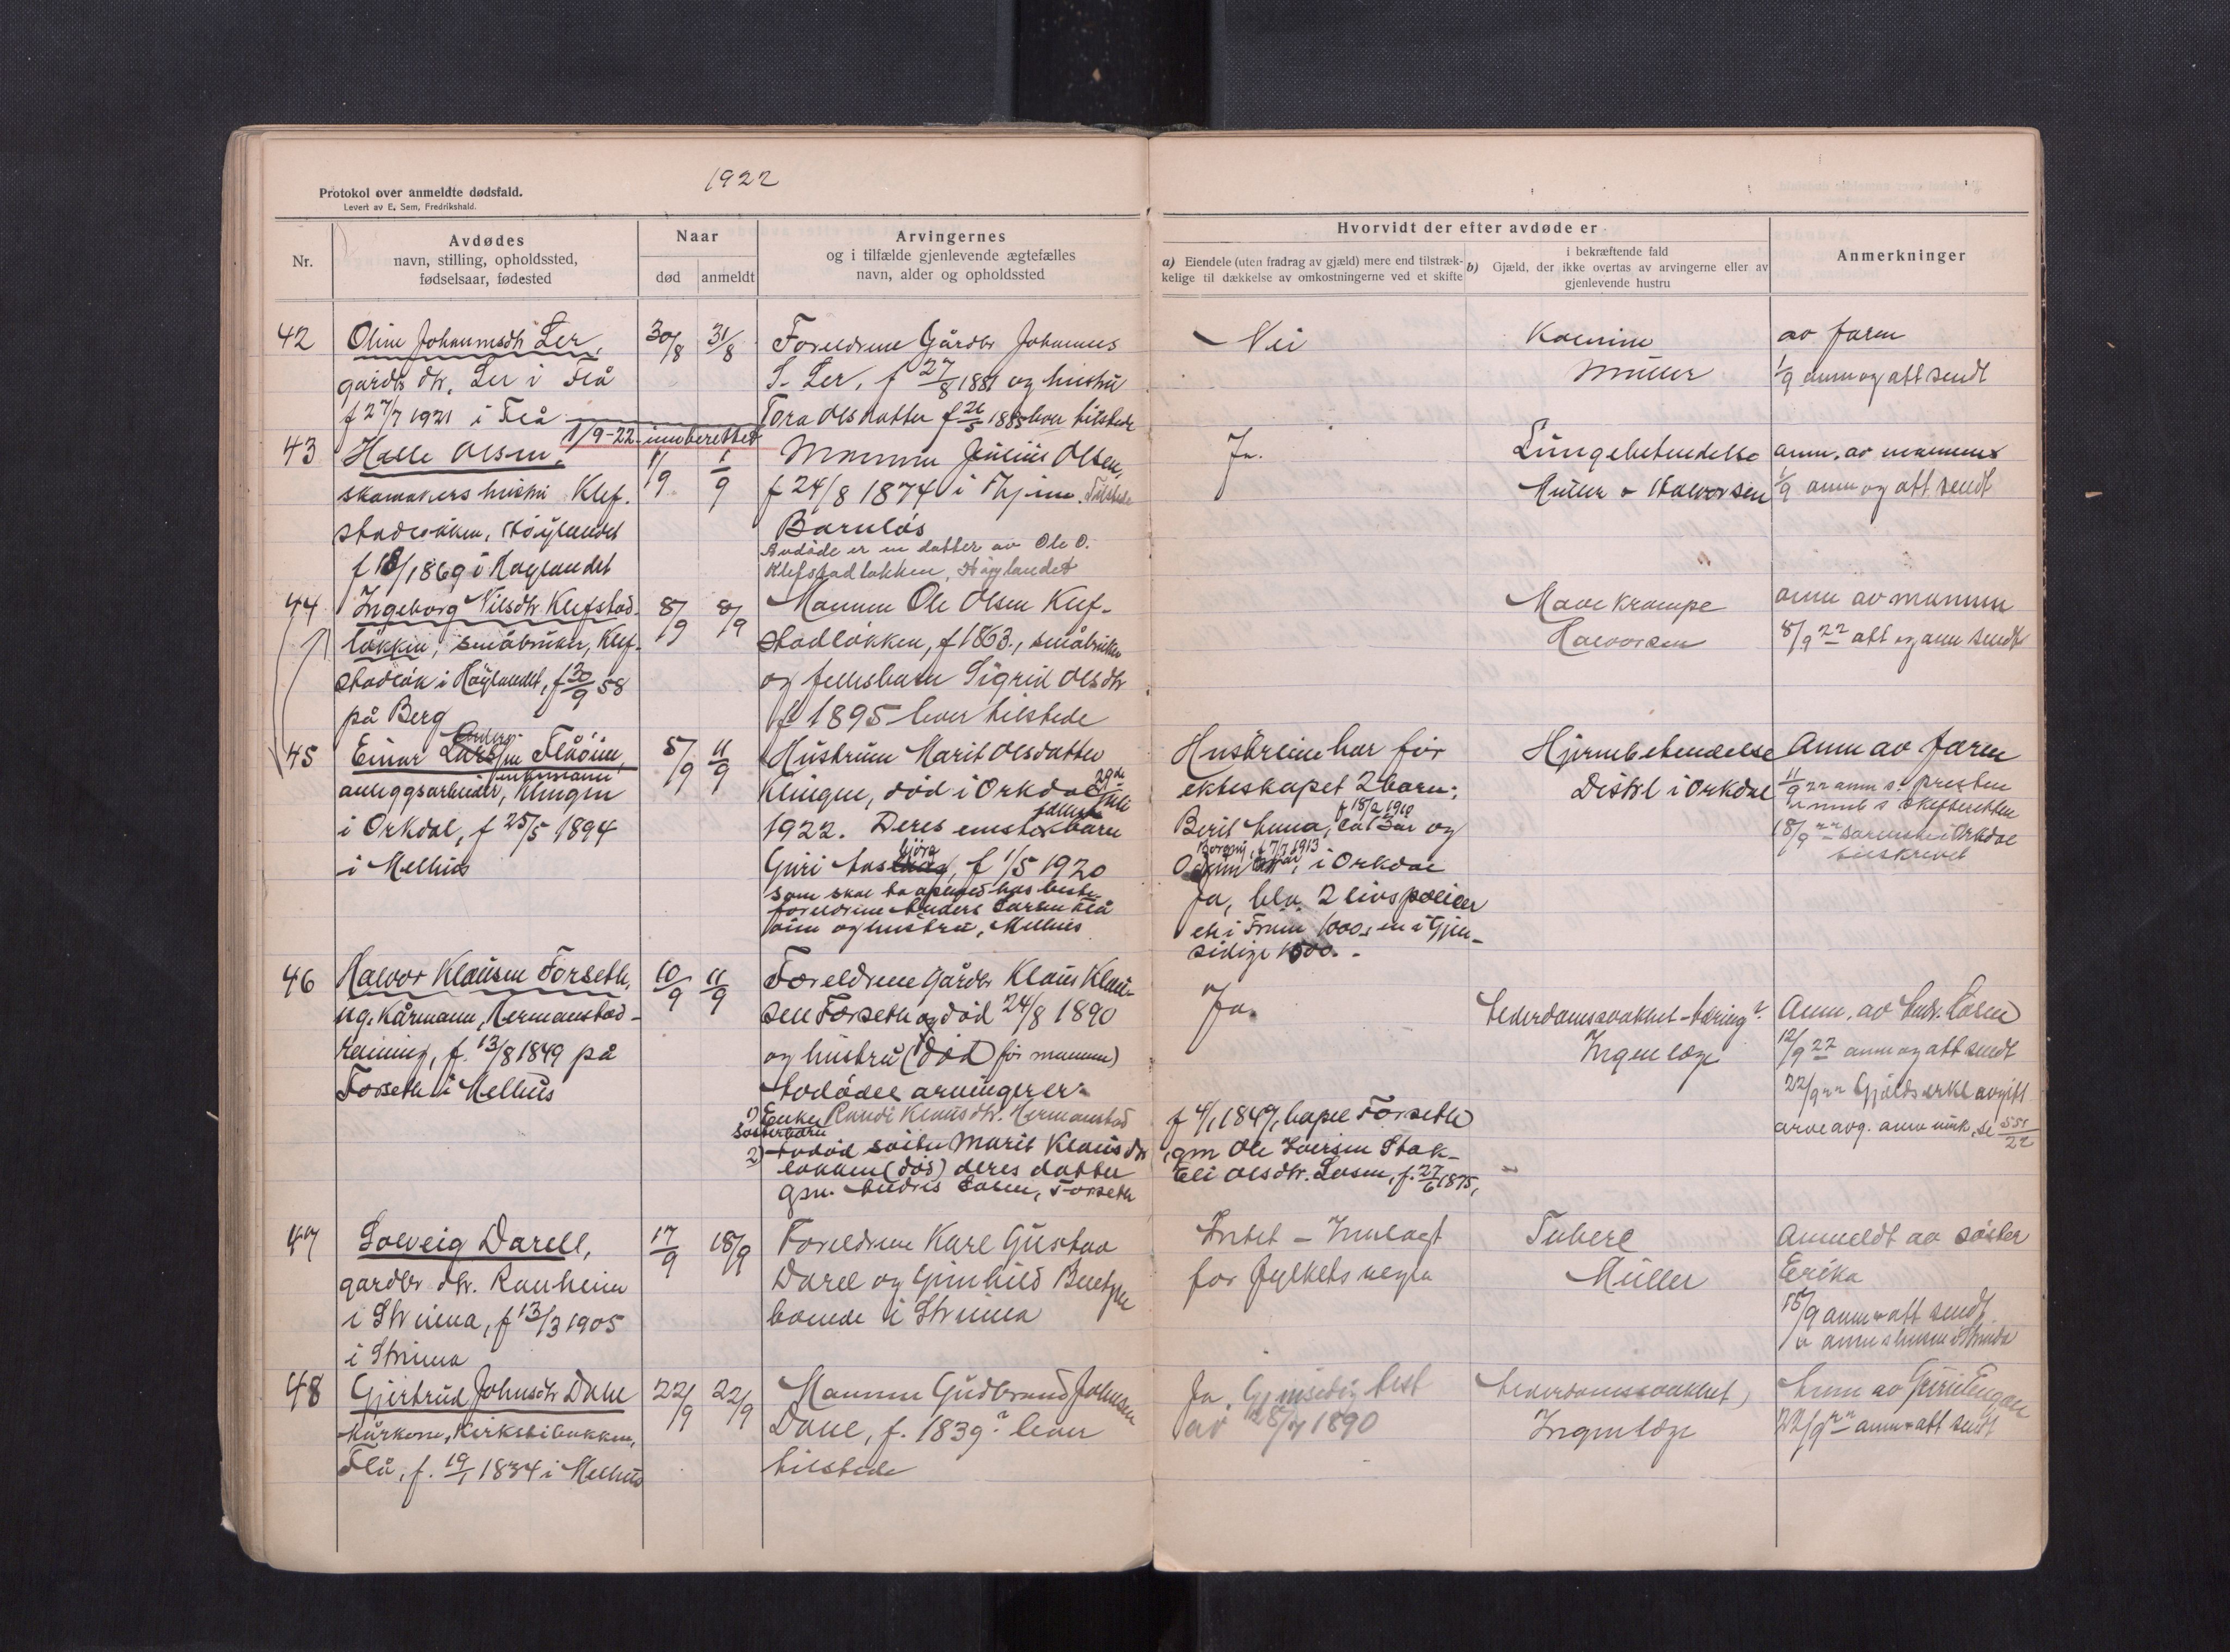 1922
Protokol over anmeldte dødsfald.
Levert av E. Sem, Fredrikshald.
Nr.
Avdødes
navn, stilling, opholdssted,
fødselsaar, fødested
Naar
død
anmeldt
Arvingernes
og i tilfælde gjenlevende ægtefælles
navn, alder og opholdssted
Hvorvidt der efter avdøde er
a) Eiendele (uten fradrag av gjæld) mere end tilstræk-
kelige til dækkelse av omkostningerne ved et skifte
i bekræftende fald
b) Gjæld, der ikke overtas av arvingerne eller av
gjenlevende hustru
Anmerkninger
42
Oline Johannesdtr Ler,
gårdbr dtr. Ler i Flå
f 27/7 1921 i Flå
30/8
31/8
Foreldrene Gårdbr Johannes
S. Ler, f 27/8 1881 og hustru
Tora Olsdatter f 26/5 1885 bor tilstede
Nei
Müller
av faren
1/9 anm og att sendt
1/9-22 innberettet
43
Halle Olsen,
skomakers hustru Klef-
stadløkken, Høylandet
f 18/1 1869 i Høylandet
1/9
1/9
Mannen Julius Olsen,
f 24/8 1874 i Tilstede
Barnløs
Avdøde er en datter av Ole O.
Klefstadløkken, Høylandet
Ja.
Lungebetendelse
Müller & Halvorsen
anm. av mannen
1/9 anm og att sendt
44
Ingeborg Nilsdtr Klefstad-
løkken, småbruker, Klef-
stadløk i Høylandet, f 30/9 58
på Berg
8/9
8/9
Mannen Ole Olsen Klef-
stadløkken, f 1863., småbruker
og fellesbarn Sigrid Olsdtr
f 1895 bor tilstede
Mave krampe
Halvorsen
anm av mannen
8/9 22 att og anm sendt
45
Einar Anders Flåøien,
anleggsarbeider, enkemann, Klingen
i Orkdal, f 25/5 1894
i Melhus
5/9
11/9
Hustruen Marit Olsdatter
Klingen, død i Orkdal 29de juli
1922. Deres eneste felles barn
Guri Asbjörg, f 1/5 1920
som skal ha ophold hos beste-
foreldrene Anders Larsen Flå
øien og hustru, Melhus
Hustruen har før
ekteskapet 2 barn:
Berit Anna, f 18/2 1910 og
Borgny, f 7/7 1913 i Orkdal
Ja, bl.a. 2 livspoliser
en i Fram 1000, en i Gjen-
sidige 1500.-
Hjernebetendelse
Distrl i Orkdal
Anm av faren
11/9 22 anm s. presten
18/9 22 sorenskr i Orkdal
tilskrevet
46
Halvor Klausen Forseth,
ug. kårmann, Hermanstad-
, f. 13/8 1849 på
Forseth i Melhus
10/9
11/9
Foreldrene Gårdbr Klaus Klau-
sen Forseth og død 24/8 1890
og hustru (død før mannen)
Avdødes arvinger er:
1) Enke Randi Klausdtr. Hermanstad
søsterbarn
2) Avdød søster Marit Klausdtr
løkken (død) deres datter
gm. Andris Losen, Forseth
Ja.
f 4/1 1847, Forseth
gm Ole Iversen Stok-
Eli Olsdtr. Losen, f. 27/6 1875,
Alderdomssvakhet - tæring?
Ingen læge
Anm. av Andr. Losen
12/9 22 anm og att sendt
22/9 22 Gjelds erkl avgitt
47
Solveig Darell,
gardbr dtr. Ranheim
i Strinda, f 13/3 1905
i Strinda
17/9
18/9
Foreldrene Karl Gustav
Darel og Gunhild
boende i Strinda
Intet - Innlagt
for fylkets regn
Tuberk
Müller
Anmeldt av søster
Erika
18/9 anm & att sendt
48
Gjertrud Johnsdtr Dahl
kårkone, Kirkebibakken,
Flå, f. 19/1 1834 i Melhus
22/9
22/9
Mannen Gudbrand Johnsen
Dahl, f. 1839? bor
tilstede
Ja. Gjensidig test
av 28/7 1890
Alderdomssvakhet
Ingen læge
22/9 22 anm & att sendt